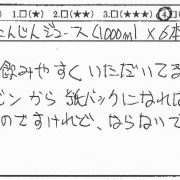 1.□(★) 2.□(★★) 3.□(★★★) ④□(
にんじんジュース(1000ml×6本
飲みやすくいただいてる
ビンから紙パックになれな
のですけれど、ならないで